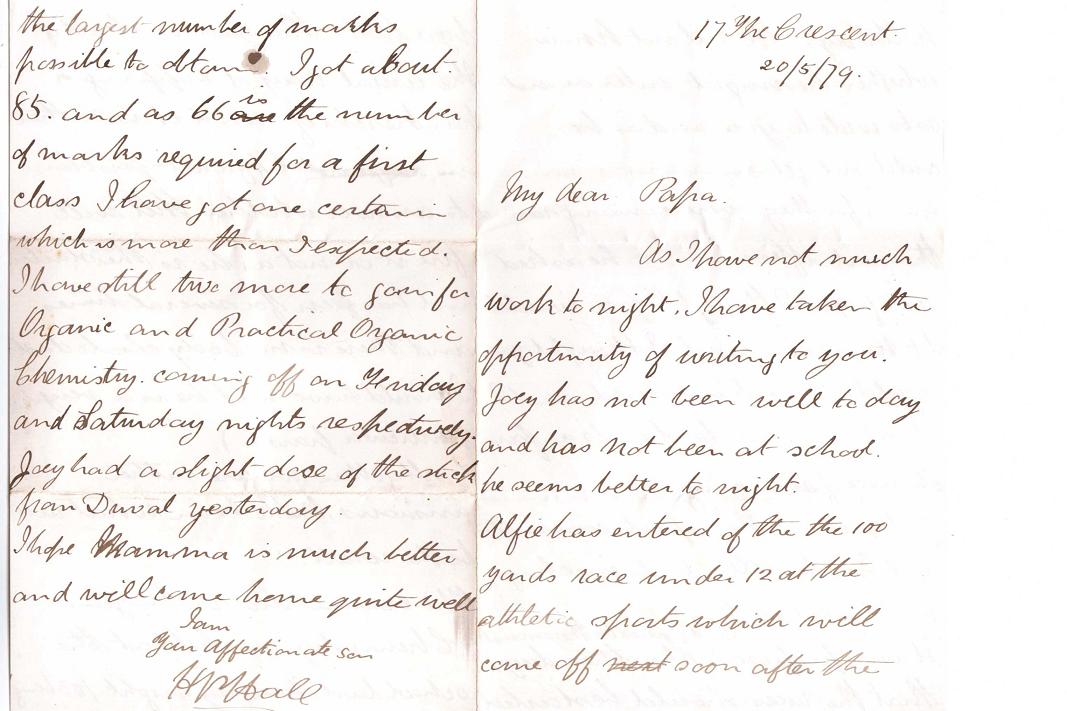 the largest number of marks
possible to obtain. I got about.
85. and as 66 are is the number
of marks required for a first
class I have got one certain
which is more than I expected.
I have still two more to go in for
Organic and Practical Organic
Chemistry. coming off on Friday
and Saturday nights respectively.
Joey had a slight dose of the stick
from Duval yesterday.
I hope Mamma is much better
and will come home quite well
I am
Your affectionate son
HPHall
17 The Crescent.
20/5/79.
My dear Papa.
As I have not much
work to night, I have taken the
opportunity of writing to you.
Joey has not been well to day
and has not been at school.
he seems better to night.
Alfie has entered of the the 100
yards race under 12 at the
athletic sports which will
come off next soon after the